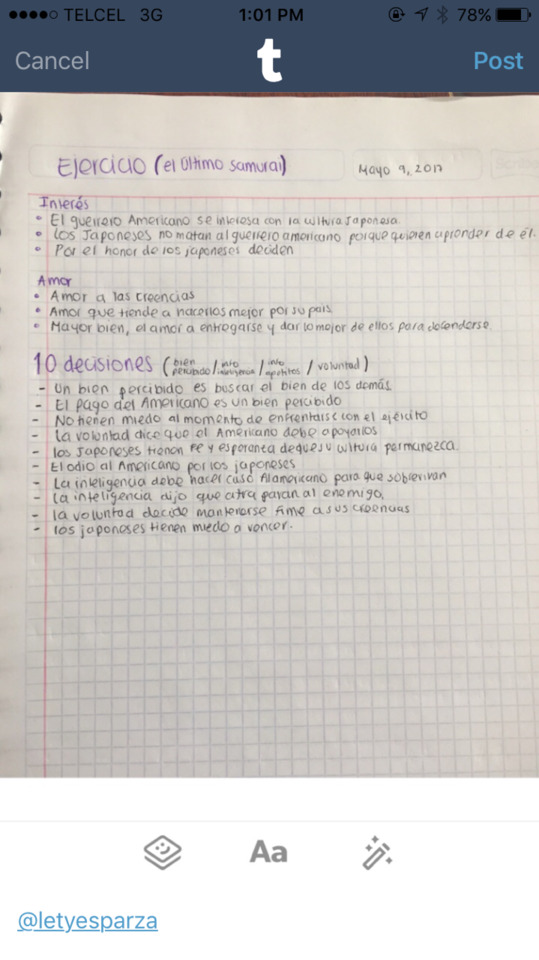 TELCEL 3G 1:01 PM 78%
Cancel t Post
Ejercicio (el último samurai) Mayo 9, 2017
Interés
• El guerrero Americano se interesa con la cultura Japonesa.
• Los Japoneses no matan al guerrero americano porque quieren aprender de él.
• Por el honor de los japoneses deciden
Amor
• Amor a las creencias
• Amor que tiende a hacerlos mejor por su país
• Mayor bien, el amor a entregarse y dar lo mejor de ellos para defenderse.
10 decisiones (bien percibido / info inteligencia / info apetitos / voluntad)
- Un bien percibido es buscar el bien de los demás.
- El pago del Americano es un bien percibido
- No tienen miedo al momento de enfrentarse con el ejército
- La voluntad dice que el Americano debe apoyarlos
- los Japoneses tienen fe y esperanza de que su cultura permanezca.
- El odio al Americano por los japoneses
- La inteligencia debe hacer caso Al americano para que sobrevivan
- la inteligencia dijo que al enemigo.
- la voluntad decide mantenerse fime a sus creencias
- los japoneses tienen miedo a vencer.
Aa
@letyesparza